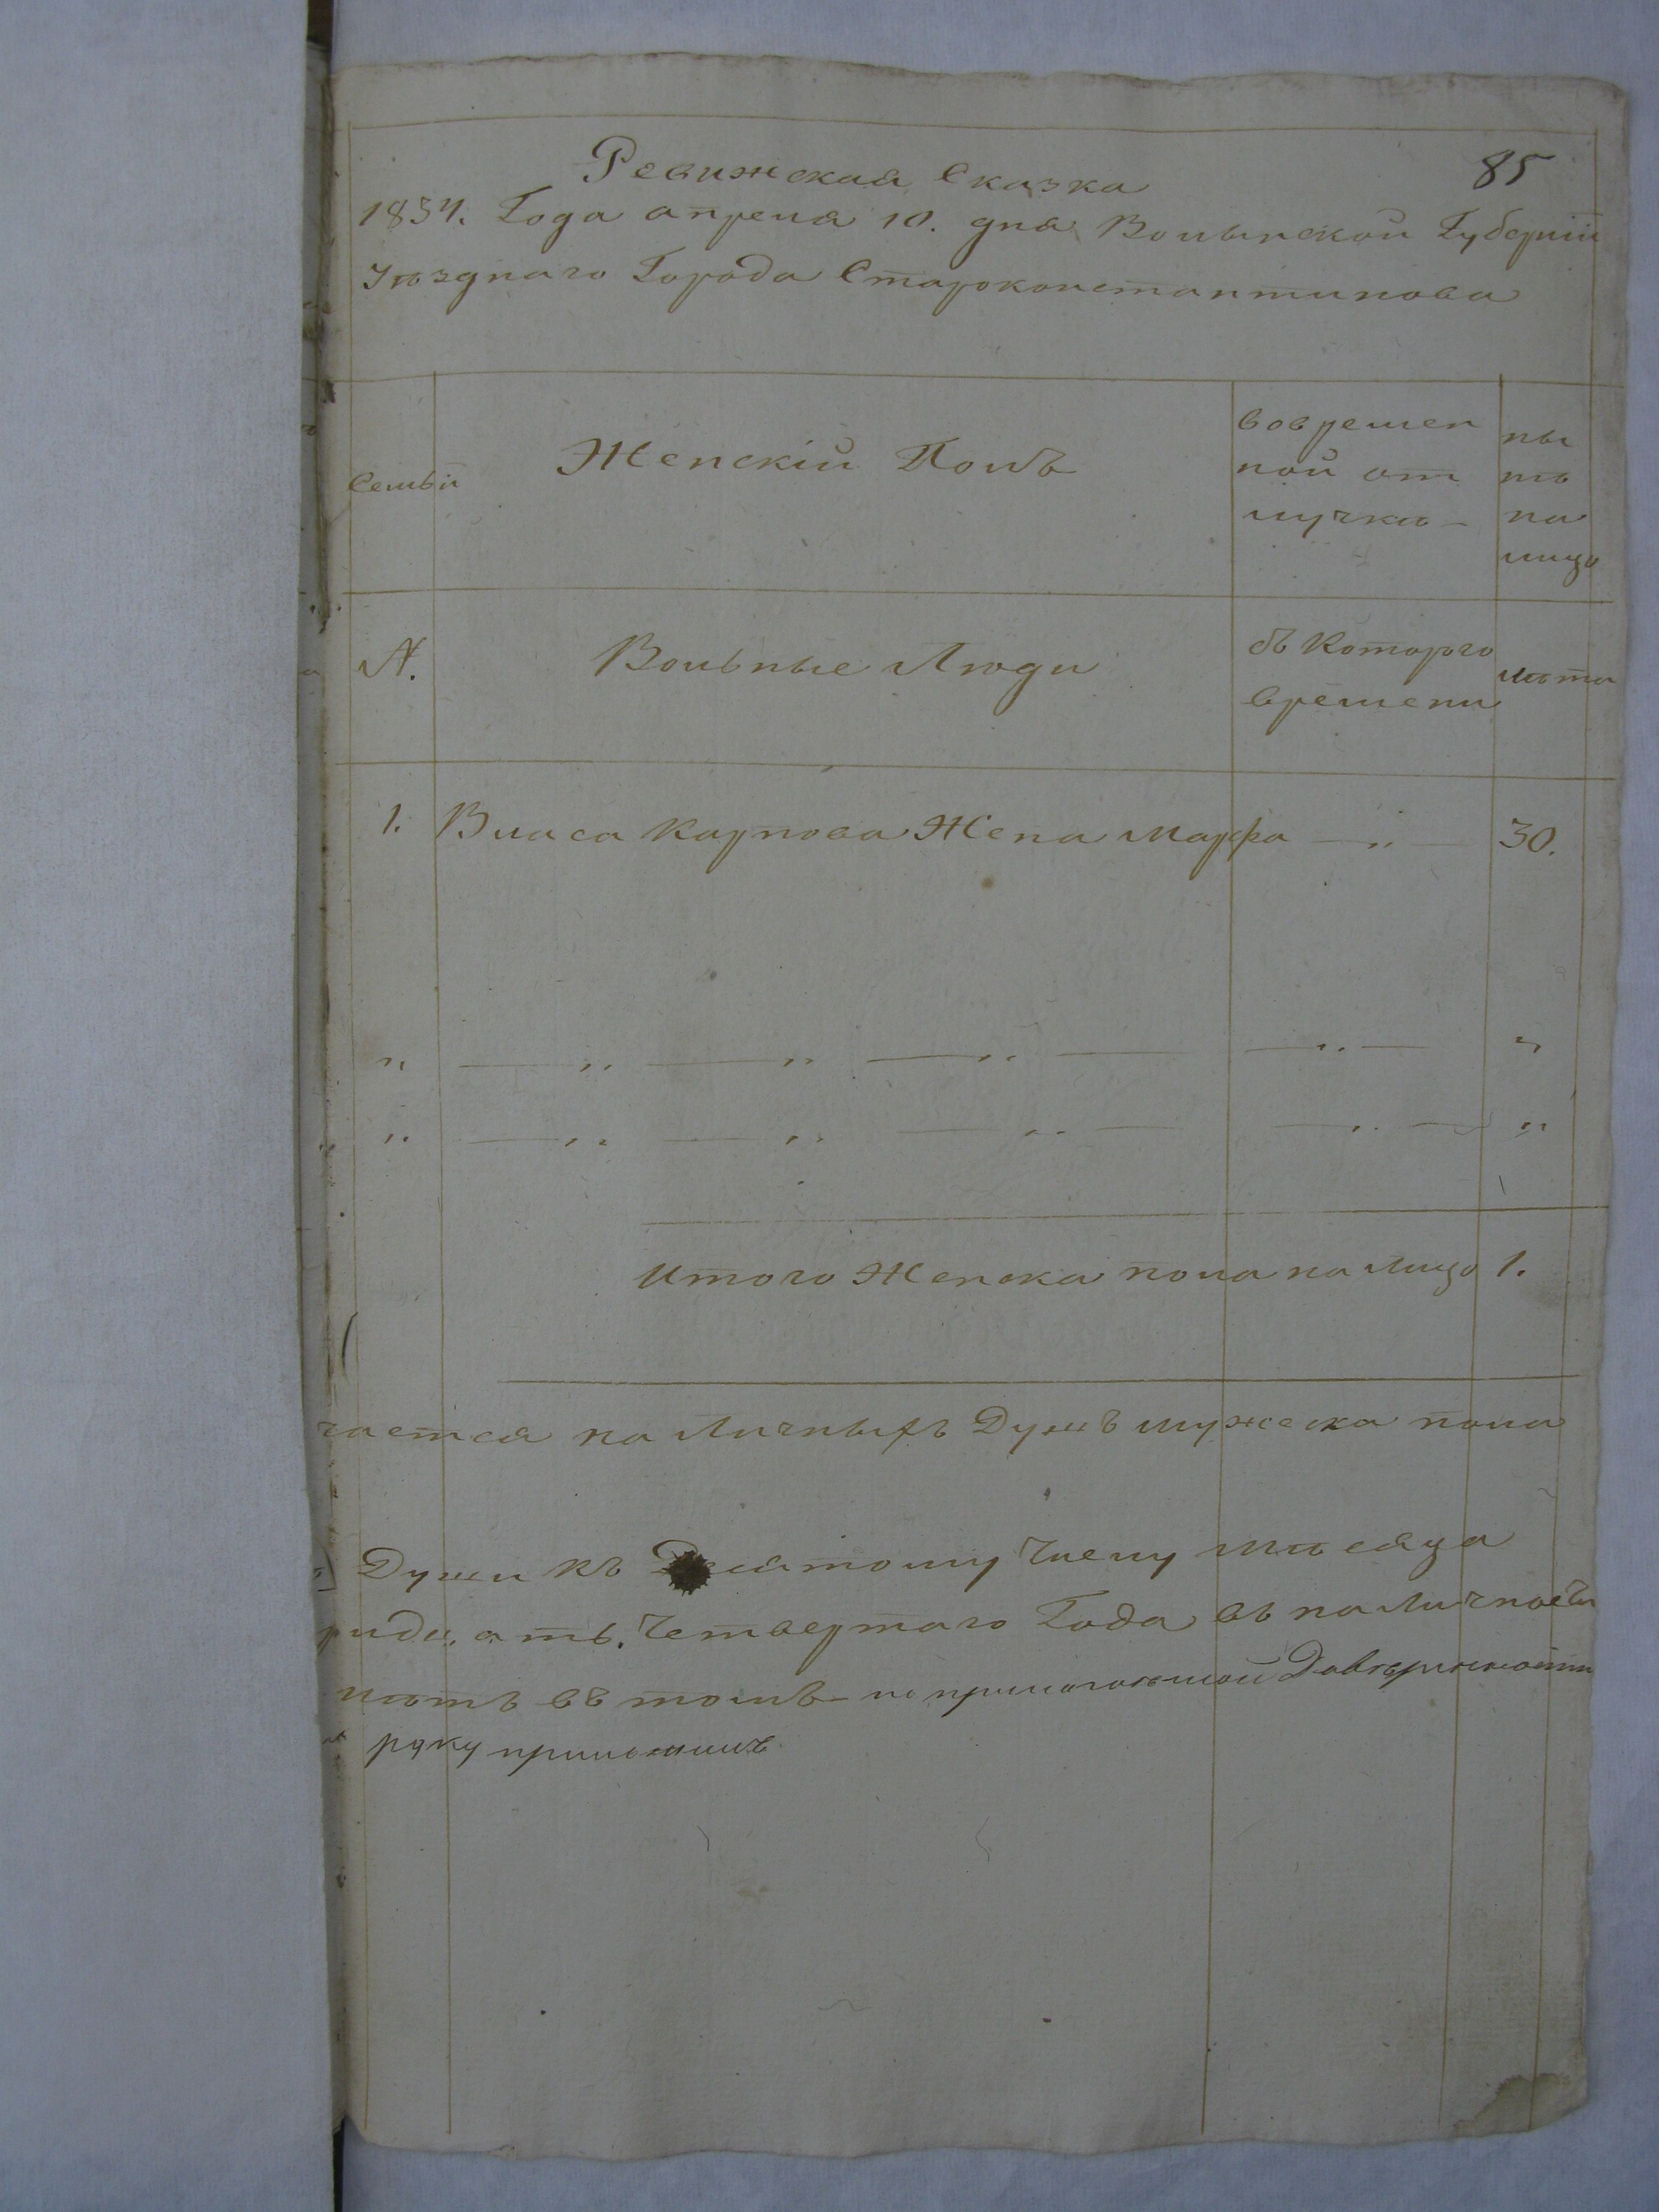 85
Ревижская Сказка
1834. Года апреля 10. дня Волынской Губернiи
Уѣзднаго Города Староконстантинова
Семьи
Женскiй Полъ
вовремен
ной от
лучкѣ –
ны
нѣ
на
лицо
№.
Вольные Люди
съ Которого
времени
лѣта
1. Власа Карпова Жена Марфа — „ — 30.
„ — „ — „ — „ — — „ — „
„ — „ — „ — „ — — „ — „
Итого Женска пола на лицо 1.
чается на Личныхъ Душъ мужеска пола
Души къ Десятому Числу мѣсяца
ридцать Четвертаго Года въ на Личности
нѣтъ въ томъ – по прилагаемой Довѣренности
руку приложилъ